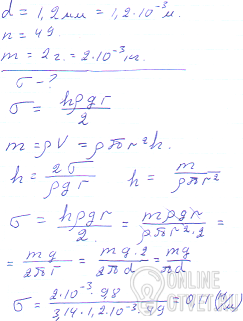 d = 1,2 мм = 1,2·10⁻³ м.
n = 49.
m = 2 г. = 2·10⁻³ кг.
σ - ?
σ = hρgr / 2
m = ρV = ρπr²h.
h = 2σ / ρgr    h = m / ρπr²
σ = hρgr / 2 = mρgr / ρπr²·2 =
= mg / 2πr = mg·2 / 2πd = mg / πd
σ = 2·10⁻³·9,8 / 3,14·1,2·10⁻³·49 = 0,11 (Н/м)
ONLINE
OTVET.RU